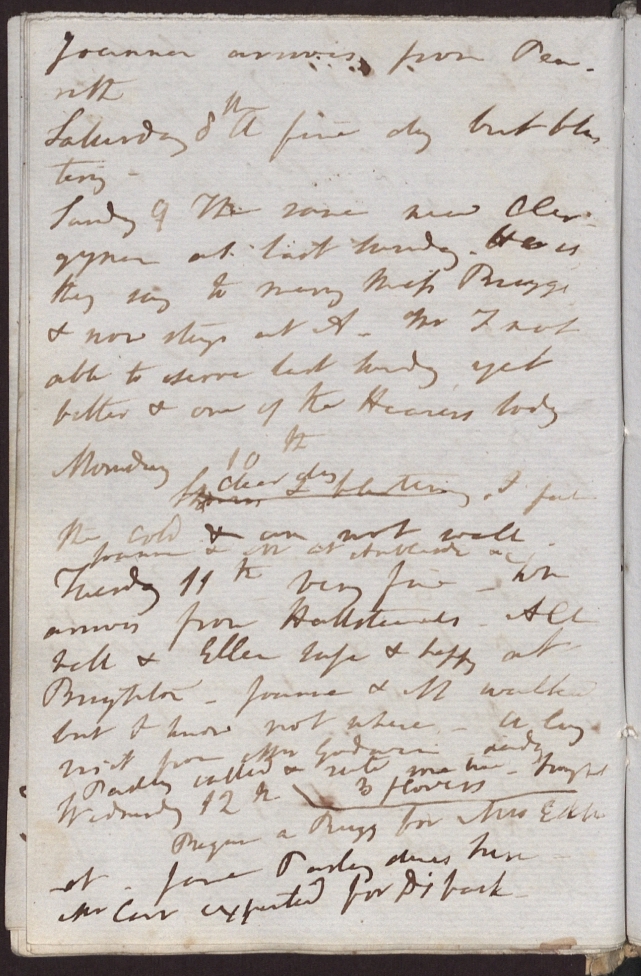 Joanna arrives from Pen-
rith
Saturday 8th A fine day but blus
tery -
Sunday 9 The same new Cler-
gyman as last Sunday. He is
they say to marry Miss Briggs
& now stays at A- Mr F not
able to serve last Sunday yet
better & one of the Hearers today
Monday 10th
clear day
& blustering. I feel
the cold & am not well.
Joanna & M at Ambleside
Tuesday 11th very fine -
arrives from Hallsteads - All
well & Ellen safe & happy at
Brighton - Joanna & M walked
but I know not where - A long
visit from Mrs Godwin
Pasley called & with me - brought
Wednesday 12th 3 flowers
Began a Rugg for Mrs
Jane Pasley dines here -
Mr Carr expected for Di back -